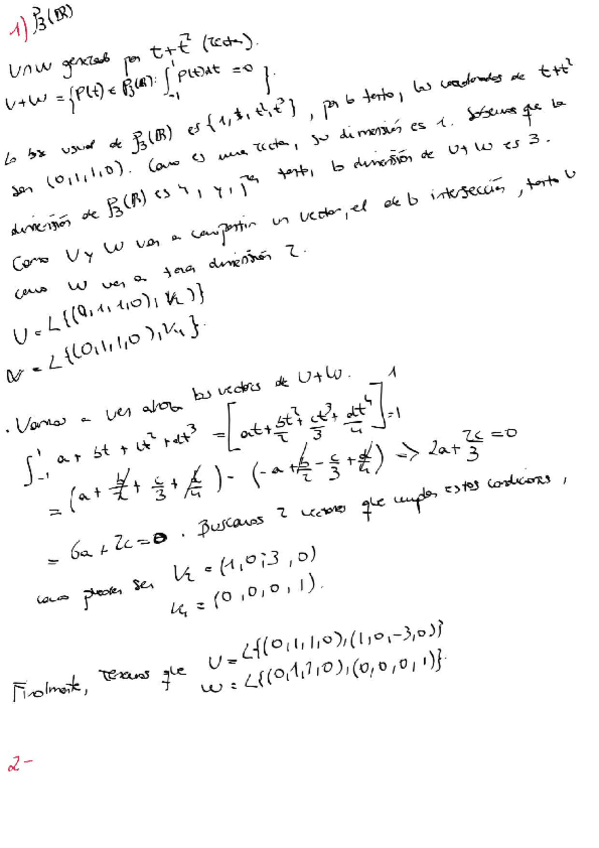 1) P₃(ℝ)
U∩W generado por t+t² (recta).
U+W = {P(t) ∈ P₃(ℝ): ∫₋₁¹ P(t)dt = 0}.
La base usual de P₃(ℝ) es {1, t, t², t³}, por lo tanto, las coordenadas de t+t²
son (0,1,1,0). Como es una recta, su dimensión es 1. Sabemos que la
dimensión de P₃(ℝ) es 4, y, por tanto, la dimensión de U+W es 3.
Como U y W van a compartir un vector, el de la intersección, tanto U
como W van a tener dimensión 2.
U = L{(0,1,1,0), V₂)}
W = L{(0,1,1,0), V₄}.
· Vamos a ver ahora los vectores de U+W.
∫₋₁¹ a + bt + ct² + dt³ = [at + bt²/2 + ct³/3 + dt⁴/4]₋₁¹
= (a + b/2 + c/3 + d/4) - (-a + b/2 - c/3 + d/4) => 2a + 2c/3 = 0
= 6a + 2c = 0. Buscamos 2 vectores que cumplan estas condiciones,
como pueden ser V₂ = (1,0,-3,0)
V₄ = (0,0,0,1).
Finalmente, tenemos que U = L{(0,1,1,0),(1,0,-3,0)}
W = L{(0,1,1,0),(0,0,0,1)}.
2-